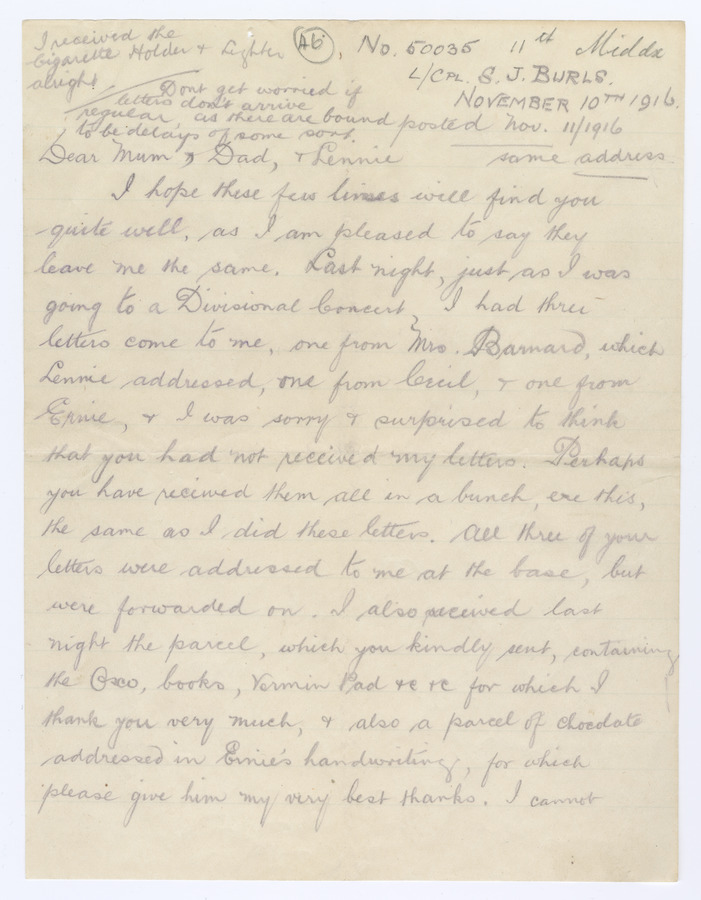 I received the
Cigarette Holder & Lighter
alright!
A6
, No. 50035 11th Middx
L/Cpl. S. J. BURLS.
NOVEMBER 10TH 1916.
posted Nov. 11/1916
same address
Dont get worried if
letters don't arrive
regular, as there are bound
to be delays of some sort.
Dear Mum & Dad, & Lennie
I hope these few lines will find you
quite well, as I am pleased to say they
leave me the same. Last night, just as I was
going to a Divisional Concert, I had three
letters come to me, one from Mrs. Barnard, which
Lennie addressed, one from Cecil, & one from
Ernie, & I was sorry & surprised to think
that you had not received my letters. Perhaps
you have received them all in a bunch, ere this,
the same as I did these letters. All three of your
letters were addressed to me at the base, but
were forwarded on. I also received last
night the parcel, which you kindly sent, containing
the Oxo, books, Vermin Pad &c &c for which I
thank you very much, & also a parcel of chocolate
addressed in Ernie's handwriting, for which
please give him my very best thanks. I cannot